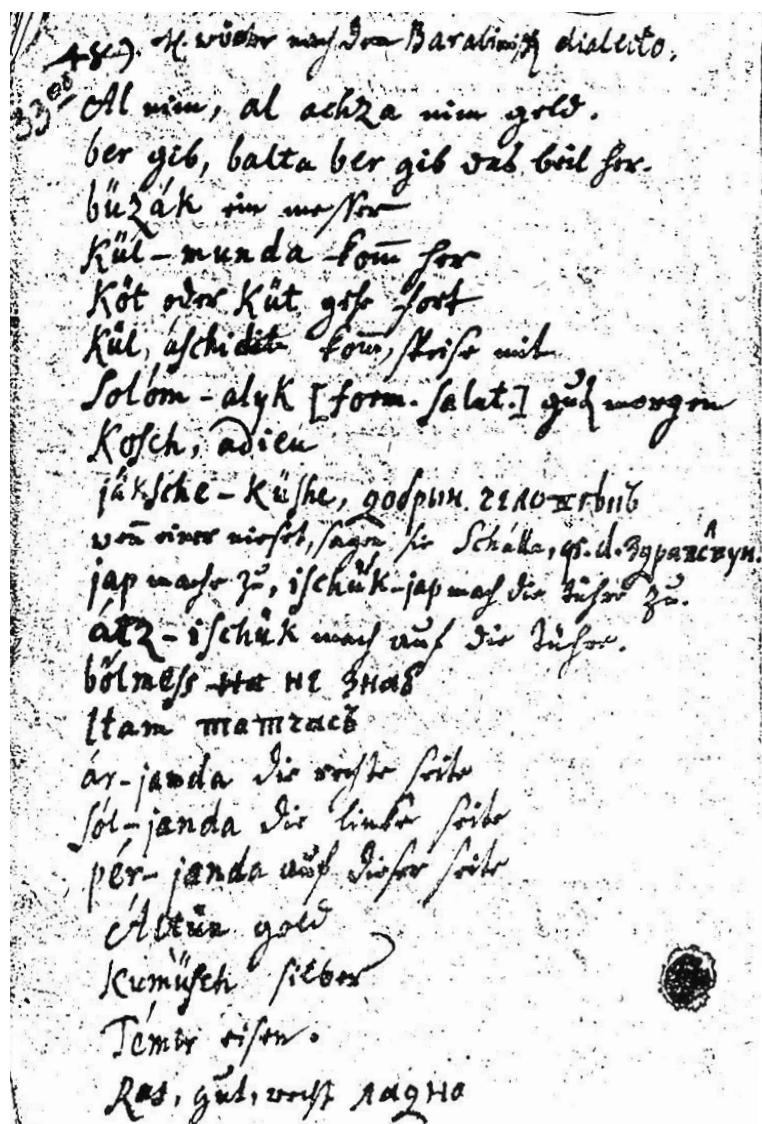 48). H. wörter nach dem Barabinz. dialecto.
3300
Al nim, al achza nim geld.
ber gib, balta ber gib das beil her.
büzák ein messer
Kül-munda kom̄ her
Köt oder Küt gehe fort
Kül, áschidit kom̄, speise mit
Solóm-alyk [form. salut.] gut morgen
Kosch, adieu
jäksche-Küshe, добрын. человѣкъ
wen̄ einer nieset, sagen sie Schálla, q. d. здравствуи.
jap mache zu, ischük-jap mach die tühre zu.
átz-ischük mach auf die tühre.
bölmess на не знаѣ
ltam тотчасъ
ár-janda die rechte seite
sól-janda die linke seite
pér-janda auf dieser seite
Altün gold
Kumüsch silber
Témir eisen.
Rat, gut, recht ладно